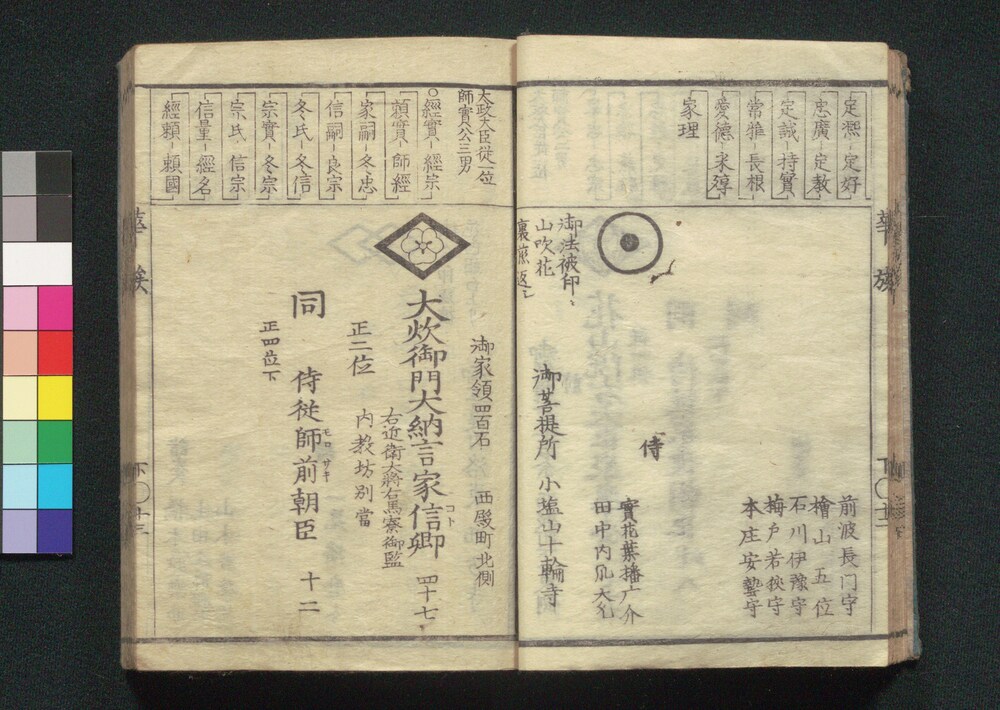 定熈-定好
忠廣-定教
定誠-持實
常雅-長根
愛德-家厚
家理
御法被印
山吹花
裏
御菩提所 小塩山十輪寺
侍
前波長门守
檜山 五位
石川伊豫守
梅戸若狹守
本庄安藝守
寳花葉播广介
田中内
華族
下〇十二
太政大臣從一位
師實公三男
〇經實-經宗
頼實-師經
家嗣-冬忠
信嗣-良宗
冬氏-冬信
宗實-冬宗
宗氏-信宗
信量-經名
經頼-頼國
御家領四百石 西殿町北側
大炊御門大納言家信卿 四十七
コト
右近衛大將右馬寮御監
内教坊別當
正二位
同 侍從師前朝臣 十二
モロサキ
正四位下
華族
下〇十三